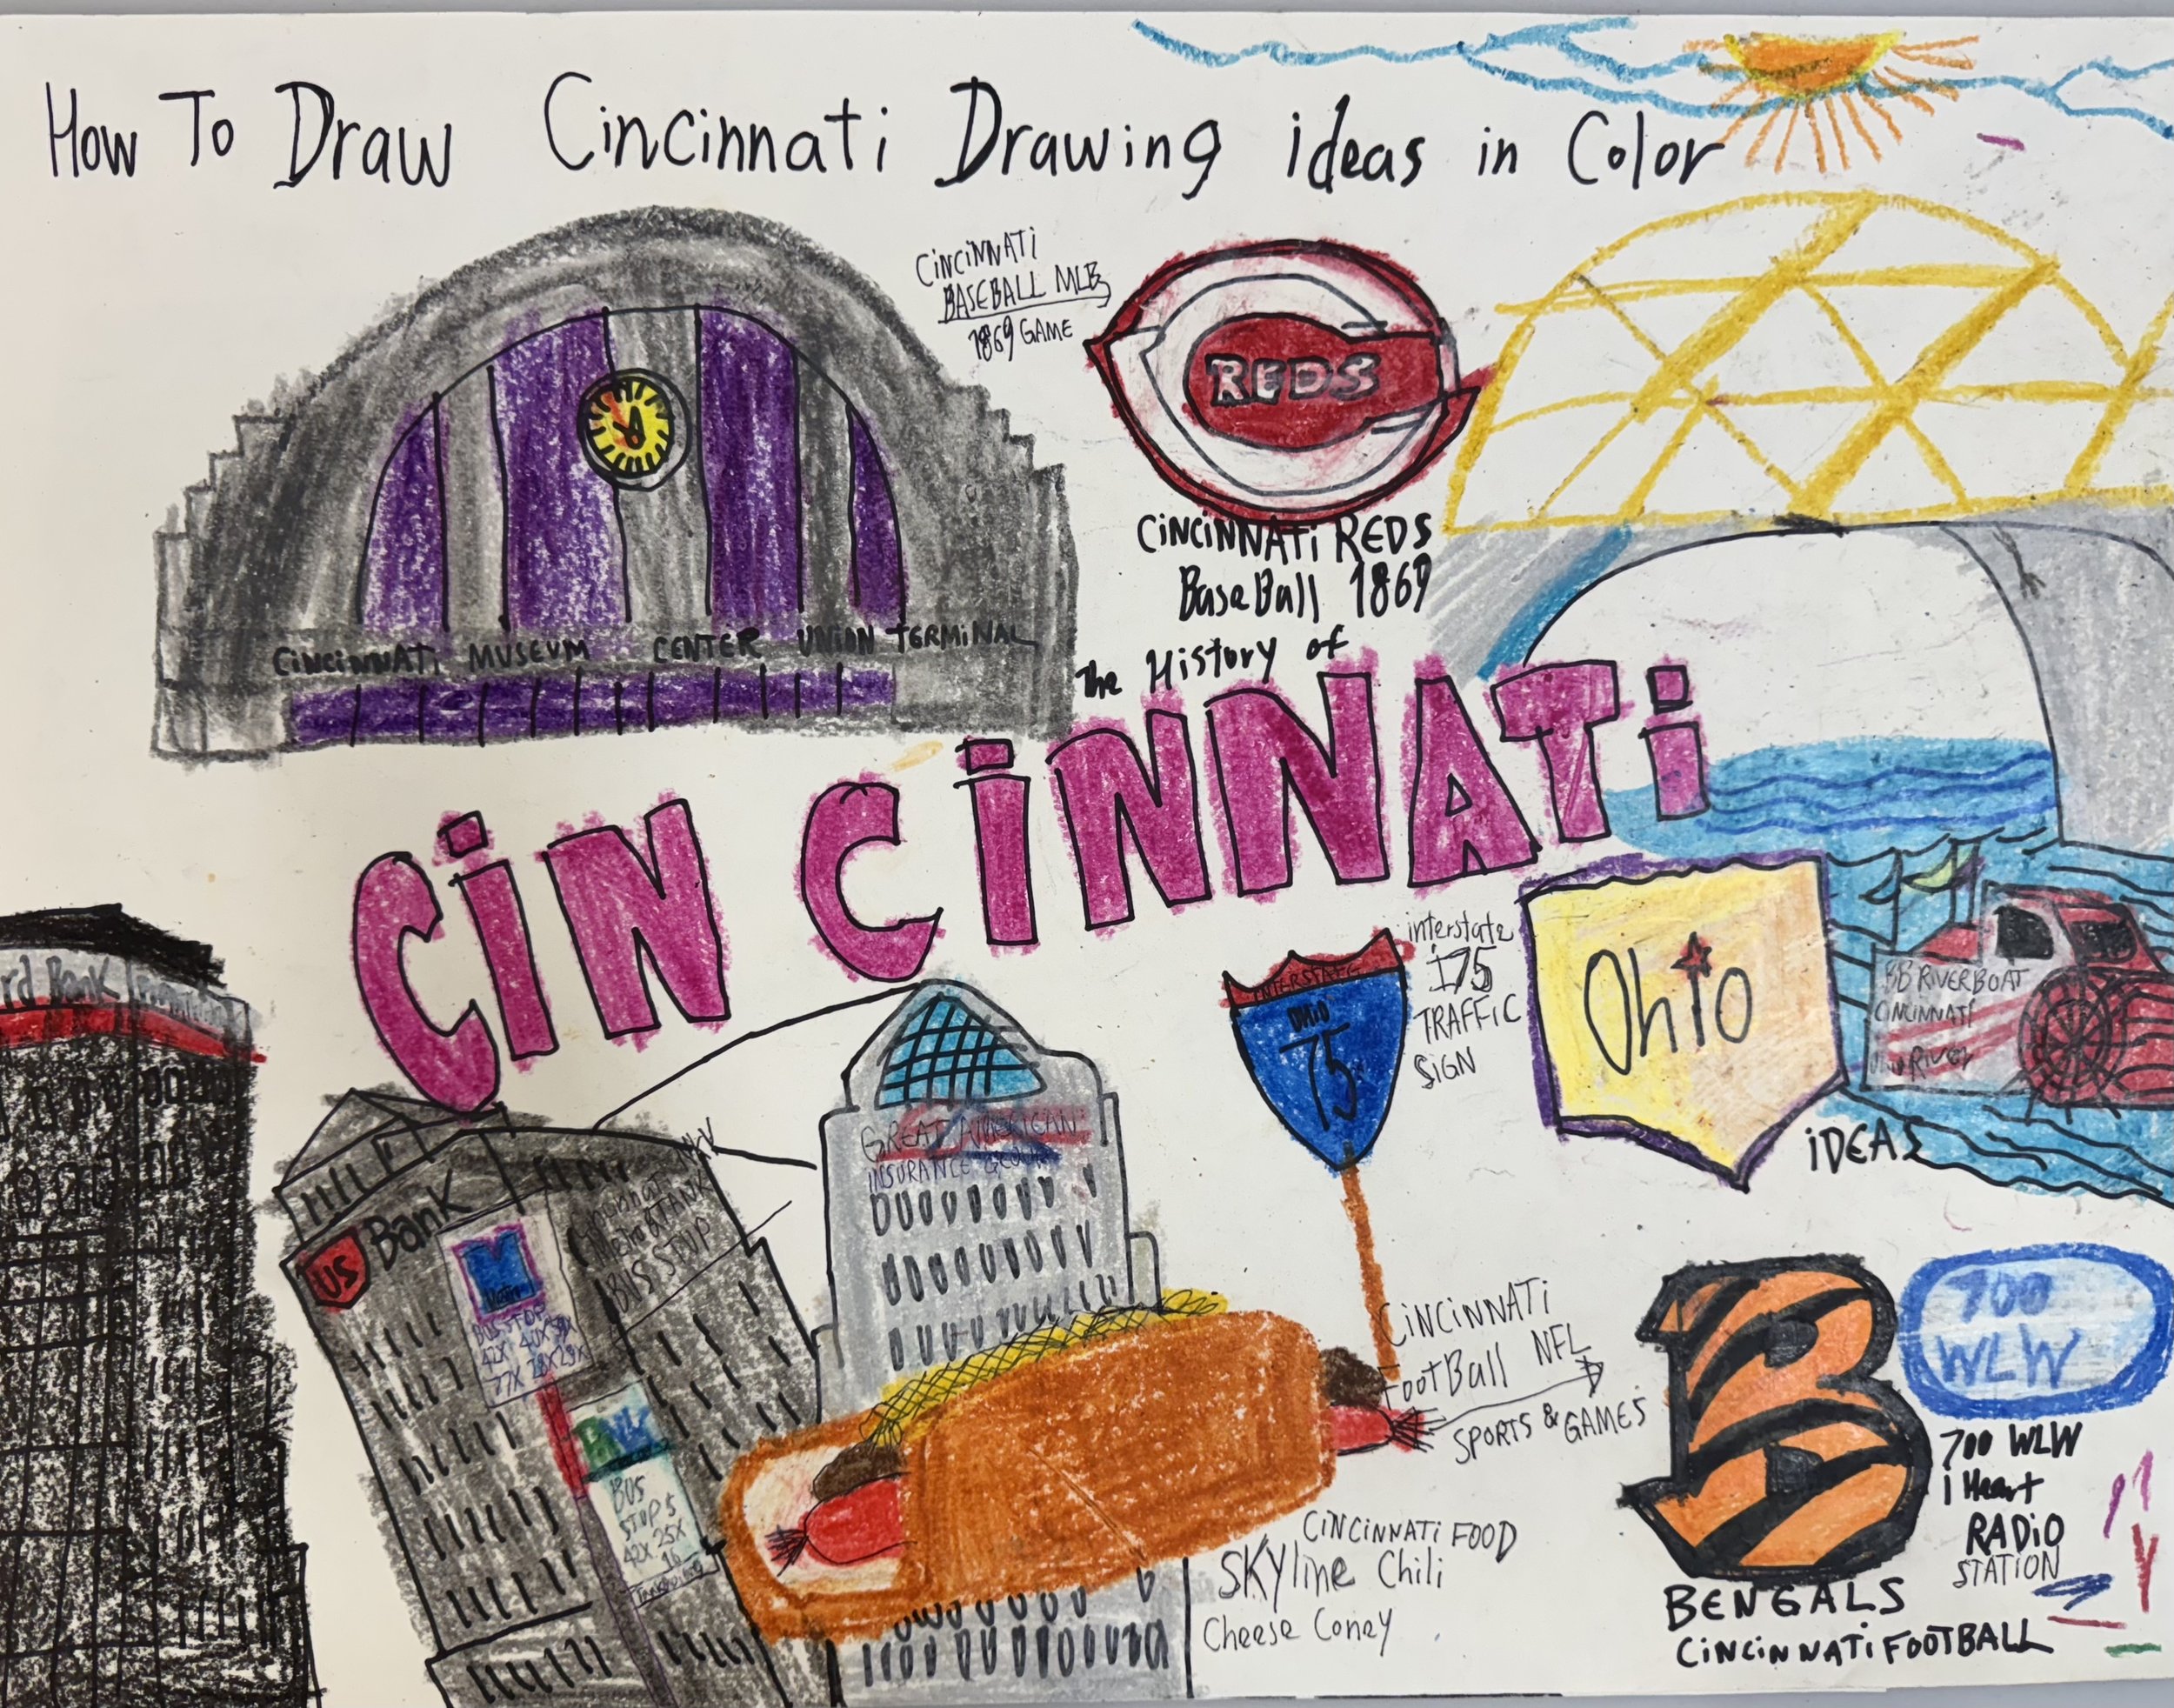 How To Draw Cincinnati Drawing ideas in Color
CiNCiNNATi
BASEBALL MLB
1869 GAME
REDS
CiNCiNNATi REDS
BaseBall 1869
CiNCiNNATi MUSEUM CENTER UNiON TERMiNAL
The History of
CiNCiNNATi
rd Bank
interstate
I75
TRAFFiC
SiGN
INTERSTATE
OHiO
75
Ohio
BB RiVERBOAT
CiNCiNNATi
RiVER
iDEAS
GREAT AMERiCAN
INSURANCE GROUP
US Bank
Metro
BUS STOP
42X
77X 28X 29X
BUS STOP
BUS
STOP 5
42X 25X
16
CiNCiNNATi
FootBall NFL
SPORTS & GAMES
700
WLW
700 WLW
I Heart
RADiO
STATiON
CiNCiNNATi FOOD
SKYline Chili
Cheese Coney
BENGALS
CiNCiNNATi FOOTBALL